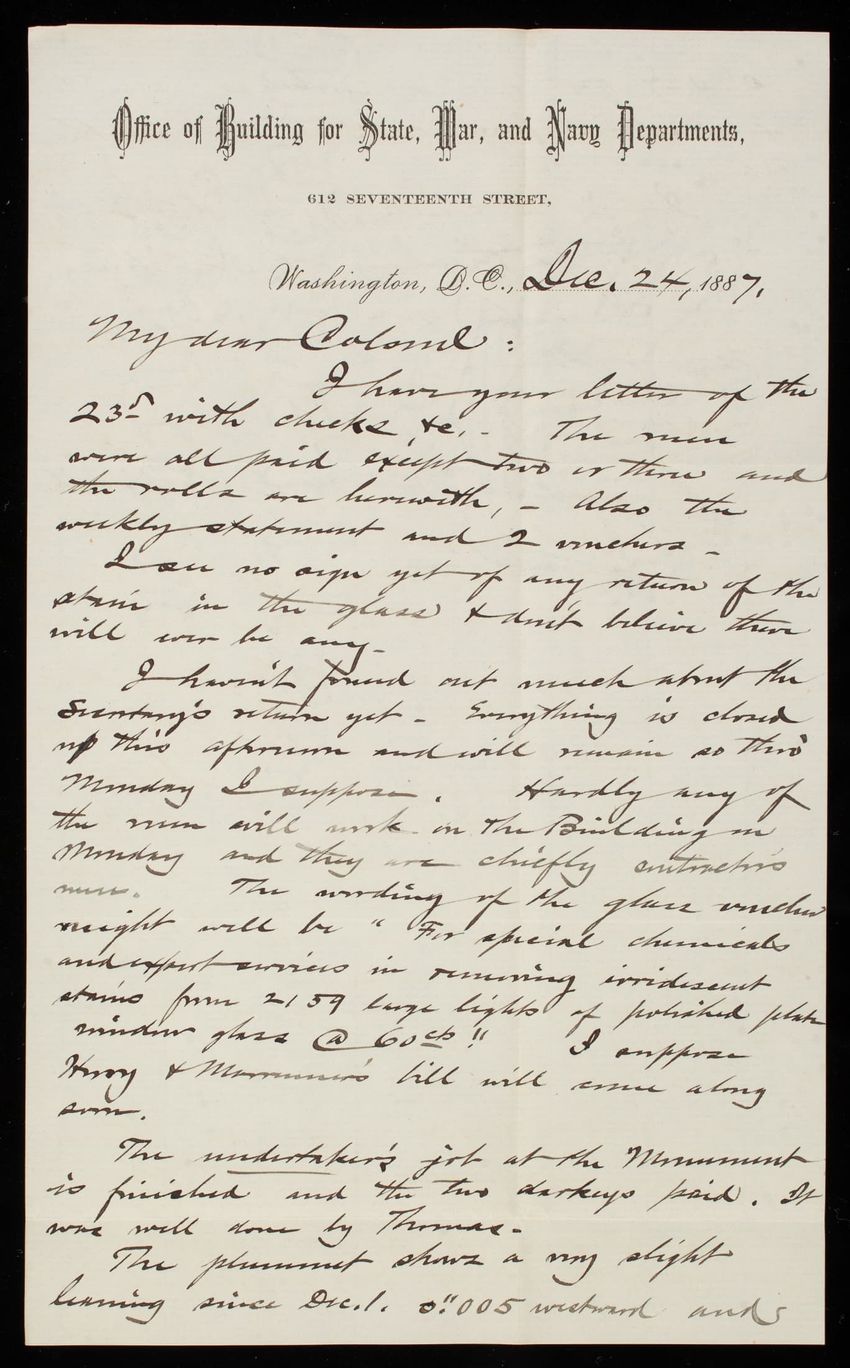 Office of Building for State, War, and Navy Departments,
612 SEVENTEENTH STREET,
Washington, D. C., Dec. 24, 1887.
My dear Colonel :
I have your letter of the
23d with checks, &c. - The men
were all paid except two or three and
the rolls are herewith, - Also the
weekly statement and 2 vouchers -
I see no sign yet of any return of the
stain in the glass & don't believe there
will ever be any -
I haven't found out much about the
Secretary's return yet - Everything is closed
up this afternoon and will remain so thro'
Monday I suppose. Hardly any of
the men will work on the Building on
Monday and they are chiefly contractor's
men. The wording of the glass voucher
might well be " For special chemicals
and expert services in removing irridescent
stains from 2159 large lights of polished plate
window glass @ 60cts " I suppose
& bill will come along
soon.
The undertaker's job at the Monument
is finished and the two darkeys paid. It
was well done by Thomas -
The plummet shows a very slight
leaning since Dec. 1. 0".005 westward and